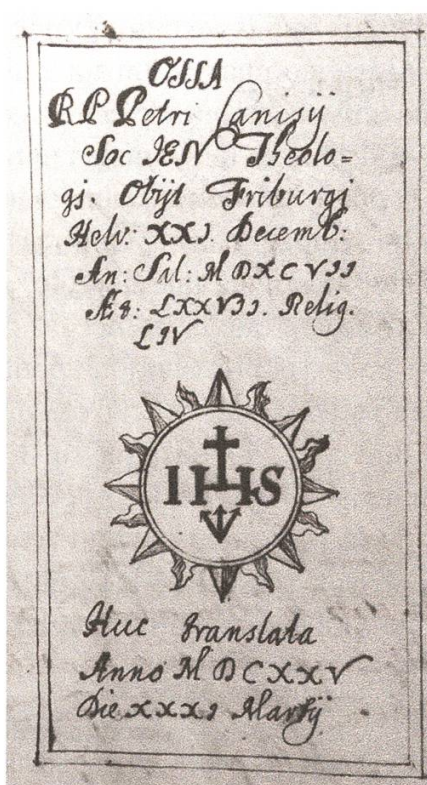 OSSA
RP Petri Canisij
Soc IESV Theolo=
gi. Obijt Friburgi
Helv: XXI. Decemb:
An: Sal: MDXCVII
Æt: LXXVII. Relig.
LIV
IHS
Huc translata
Anno MDCXXV
Die XXXI Martij